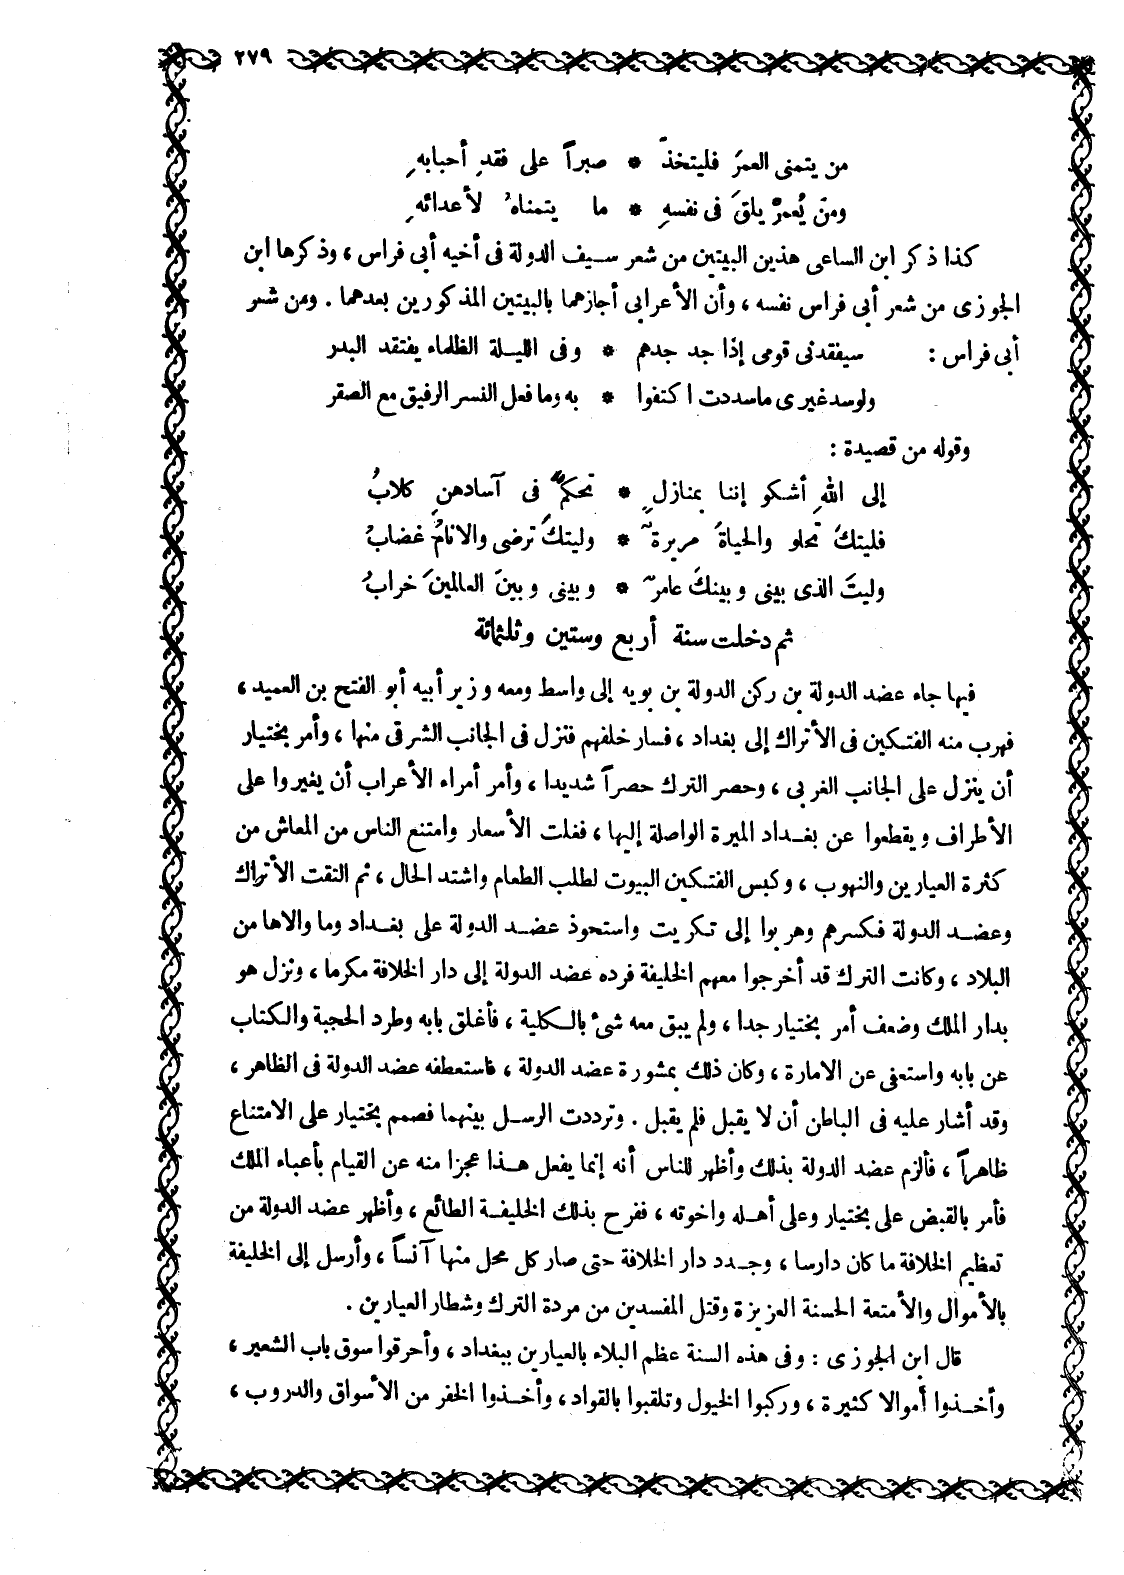 ٢٧٩
من يتمنى العمرَ فليتخذْ * صبراً على فقدِ أحبابهِ
ومنْ يُعمرْ يلقَ فى نفسهِ * ما يتمناهُ لأعدائهِ
كذا ذكر ابن الساعى هذين البيتين من شعر سيف الدولة فى أخيه أبى فراس ، وذكرها ابن
الجوزى من شعر أبى فراس نفسه ، وأن الأعرابى أجازهما بالبيتين المذكورين بعدهما . ومن شعر
أبى فراس : سيفقدنى قومى إذا جد جدهم * وفى الليلة الظلماء يفتقد البدر
ولو سد غيرى ما سددت اكتفوا * به وما فعل النسر الرفيق مع الصقر
وقوله من قصيدة :
إلى اللهِ أشكو إننا بمنازلٍ * تحكمُ فى آسادهنِ كلابُ
فليتكَ تحلو والحياةَ مريرةٌ * وليتكَ ترضى والانامُ غضابُ
وليتَ الذى بينى وبينكَ عامرٌ * وبينى وبينَ العالمينَ خرابُ
ثم دخلت سنة أربع وستين وثلثمائة
فيها جاء عضد الدولة بن ركن الدولة بن بويه إلى واسط ومعه وزير أبيه أبو الفتح بن العميد ،
فهرب منه الفتكين فى الأتراك إلى بغداد ، فسار خلفهم فنزل فى الجانب الشرقى منها ، وأمر بختيار
أن ينزل على الجانب الغربى ، وحصر الترك حصراً شديدا ، وأمر أمراء الأعراب أن يغيروا على
الأطراف ويقطعوا عن بغداد الميرة الواصلة إليها ، فغلت الأسعار وامتنع الناس من المعاش من
كثرة العيارين والنهوب ، وكبس الفتكين البيوت لطلب الطعام واشتد الحال ، ثم التقت الأتراك
وعضد الدولة فكسرهم وهربوا إلى تكريت واستحوذ عضد الدولة على بغداد وما والاها من
البلاد ، وكانت الترك قد أخرجوا معهم الخليفة فرده عضد الدولة إلى دار الخلافة مكرما ، ونزل هو
بدار الملك وضعف أمر بختيار جدا ، ولم يبق معه شئ بالكلية ، فأغلق بابه وطرد الحجبة والكتاب
عن بابه واستعفى عن الامارة ، وكان ذلك بمشورة عضد الدولة ، فاستعطفه عضد الدولة فى الظاهر ،
وقد أشار عليه فى الباطن أن لا يقبل فلم يقبل . وترددت الرسل بينهما فصمم بختيار على الامتناع
ظاهراً ، فألزم عضد الدولة بذلك وأظهر للناس أنه إنما يفعل هذا عجزا منه عن القيام بأعباء الملك
فأمر بالقبض على بختيار وعلى أهله واخوته ، ففرح بذلك الخليفة الطائع ، وأظهر عضد الدولة من
تعظيم الخلافة ما كان دارسا ، وجدد دار الخلافة حتى صار كل محل منها آنساً ، وأرسل إلى الخليفة
بالأموال والأمتعة الحسنة العزيزة وقتل المفسدين من مردة الترك وشطار العيارين .
قال ابن الجوزى : وفى هذه السنة عظم البلاء بالعيارين ببغداد ، وأحرقوا سوق باب الشعير ،
وأخذوا أموالا كثيرة ، وركبوا الخيول وتلقبوا بالقواد ، وأخذوا الخفر من الأسواق والدروب ،